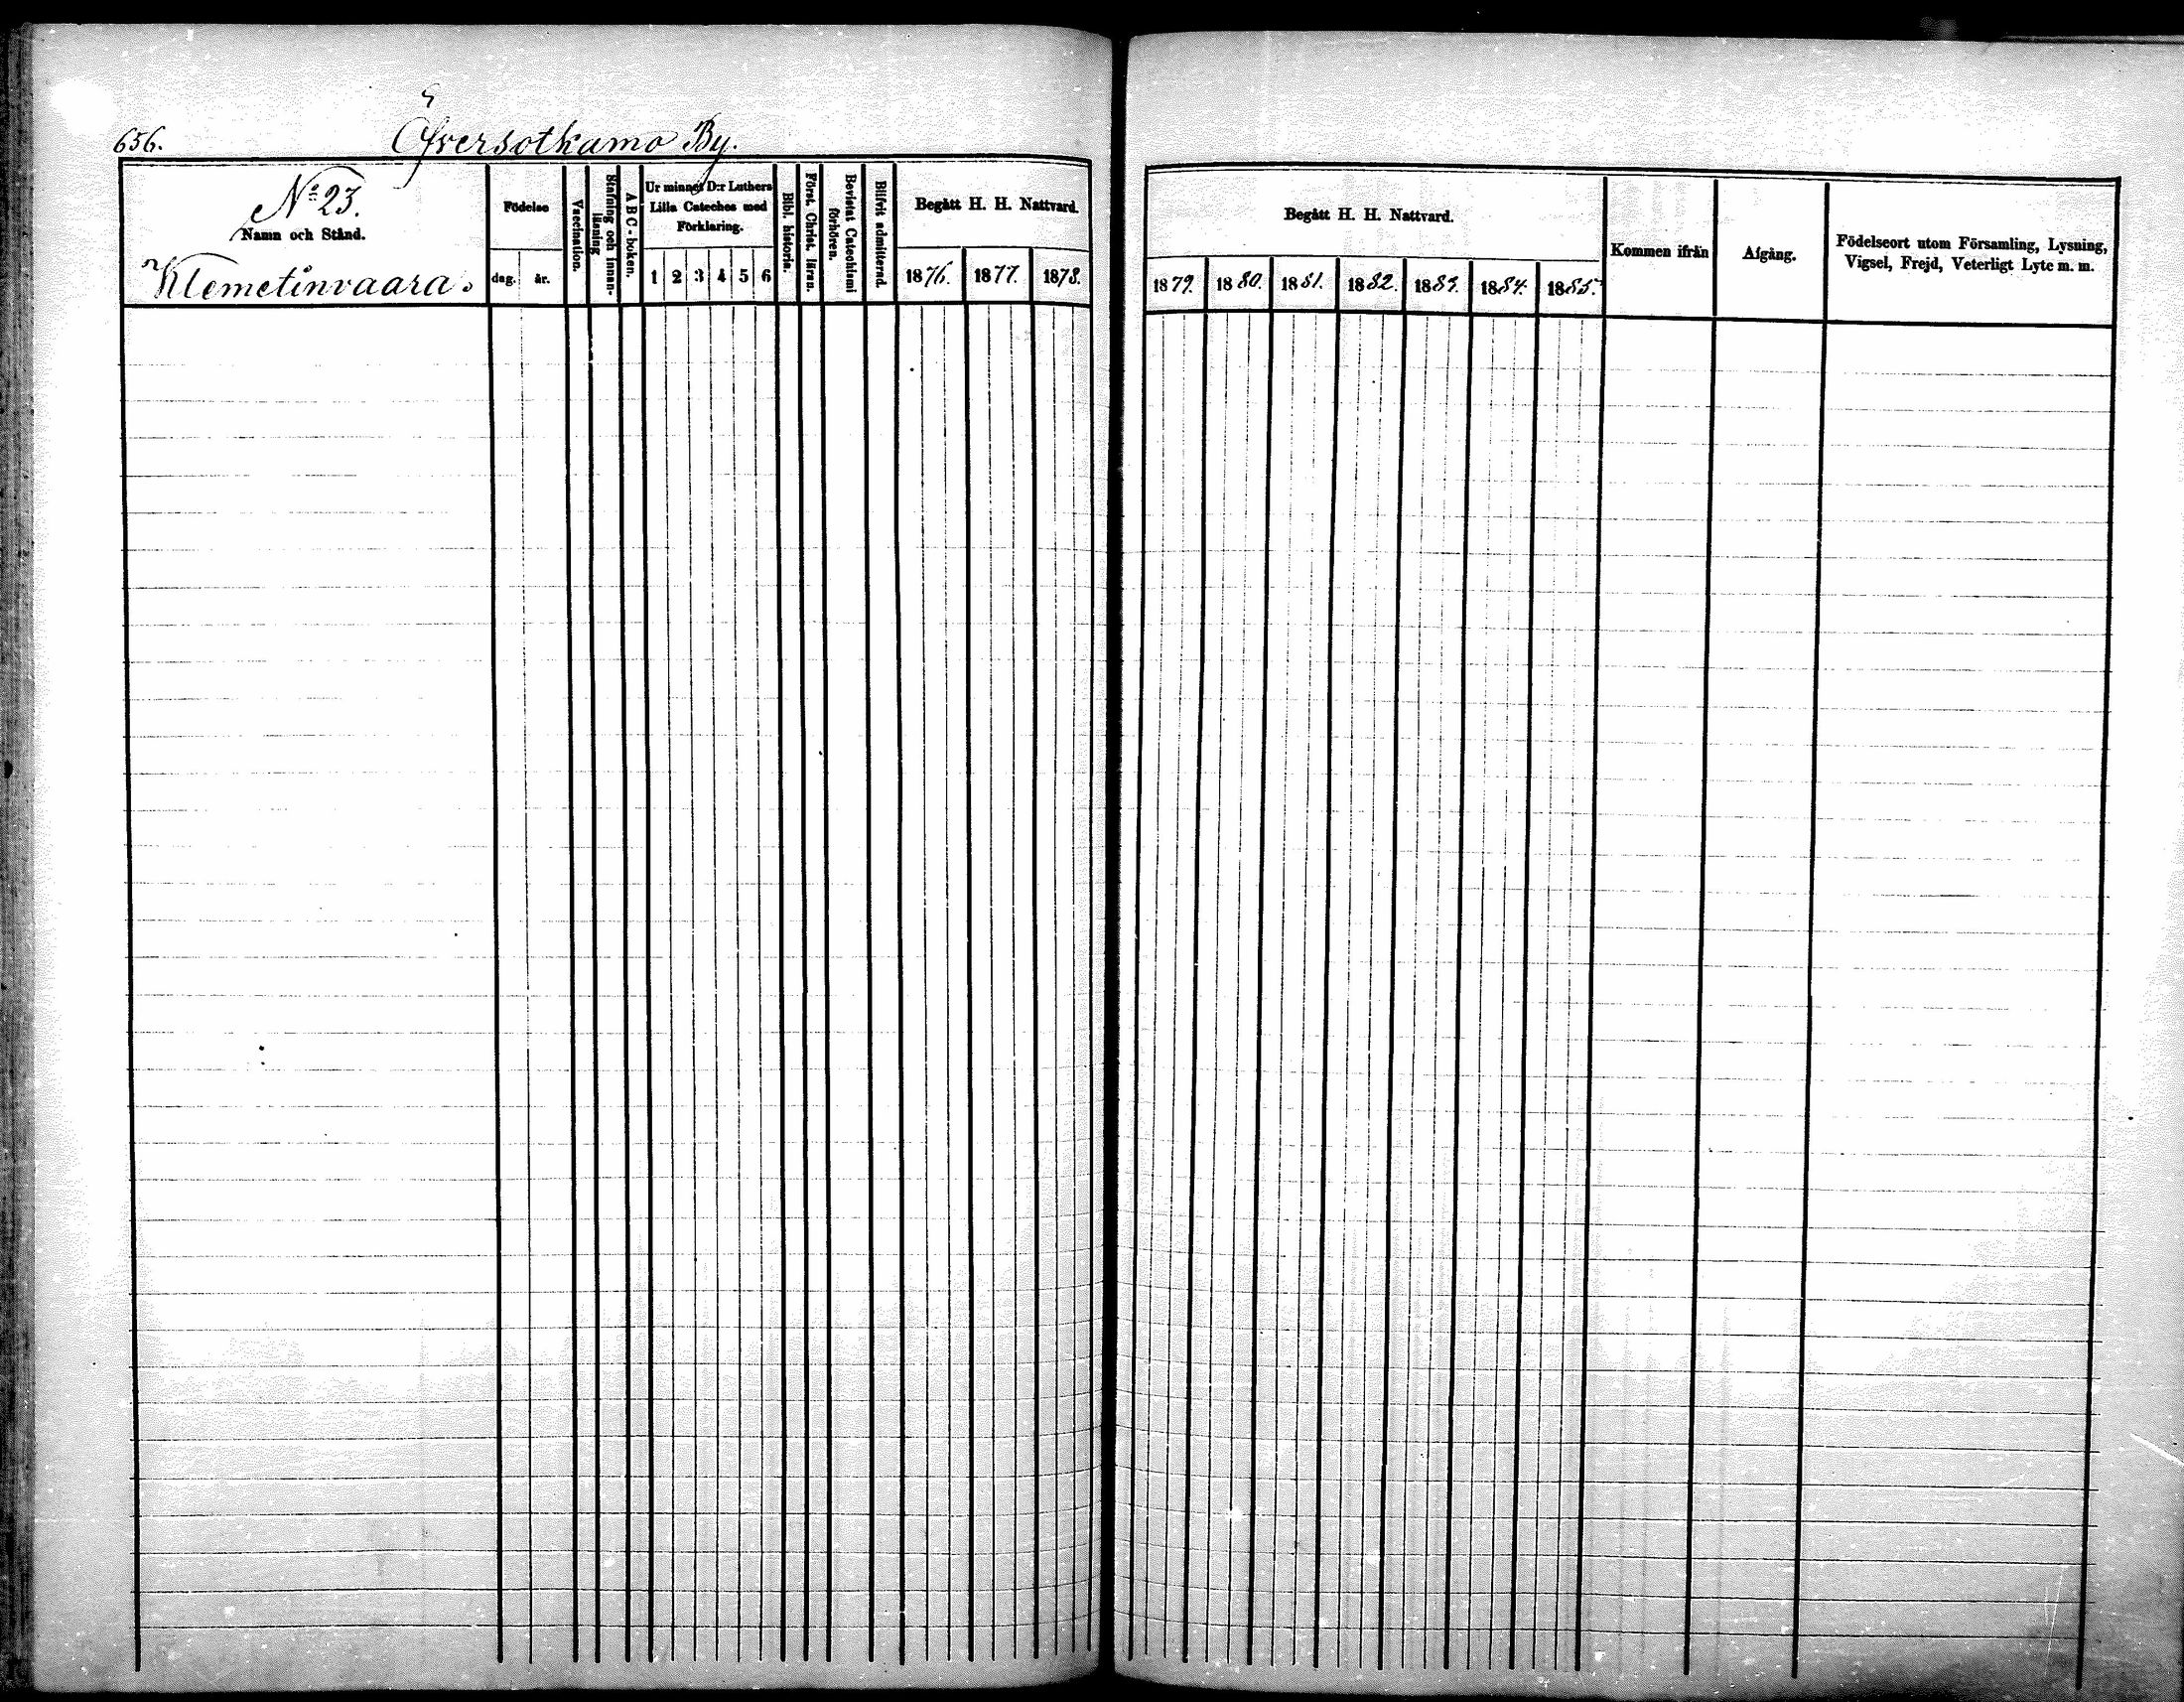 656.
Öfversotkamo By.
N:o 23.
Namn och Stånd.
Klemetinvaara.
Födelse
dag. år.
Vaccination.
Stafning och innan-
läsning
A B C-boken.
Ur minnet D:r Luthers
Lilla Cateches med
Förklaring.
1 2 3 4 5 6
Bibl. historia.
Först. Christ. läran.
Bevistat Catechismi
förhören.
Blifvit admitterad.
Begått H. H. Nattvard.
1876. 1877. 1878.
Begått H. H. Nattvard.
1879. 1880. 1881. 1882. 1883. 1884. 1885.
Kommen ifrån
Afgång.
Födelseort utom Församling, Lysning,
Vigsel, Frejd, Veterligt Lyte m. m.